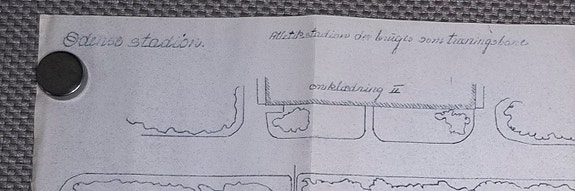 Odense stadion.
Atletikstadion der brugts som træningsbane
omklædning II